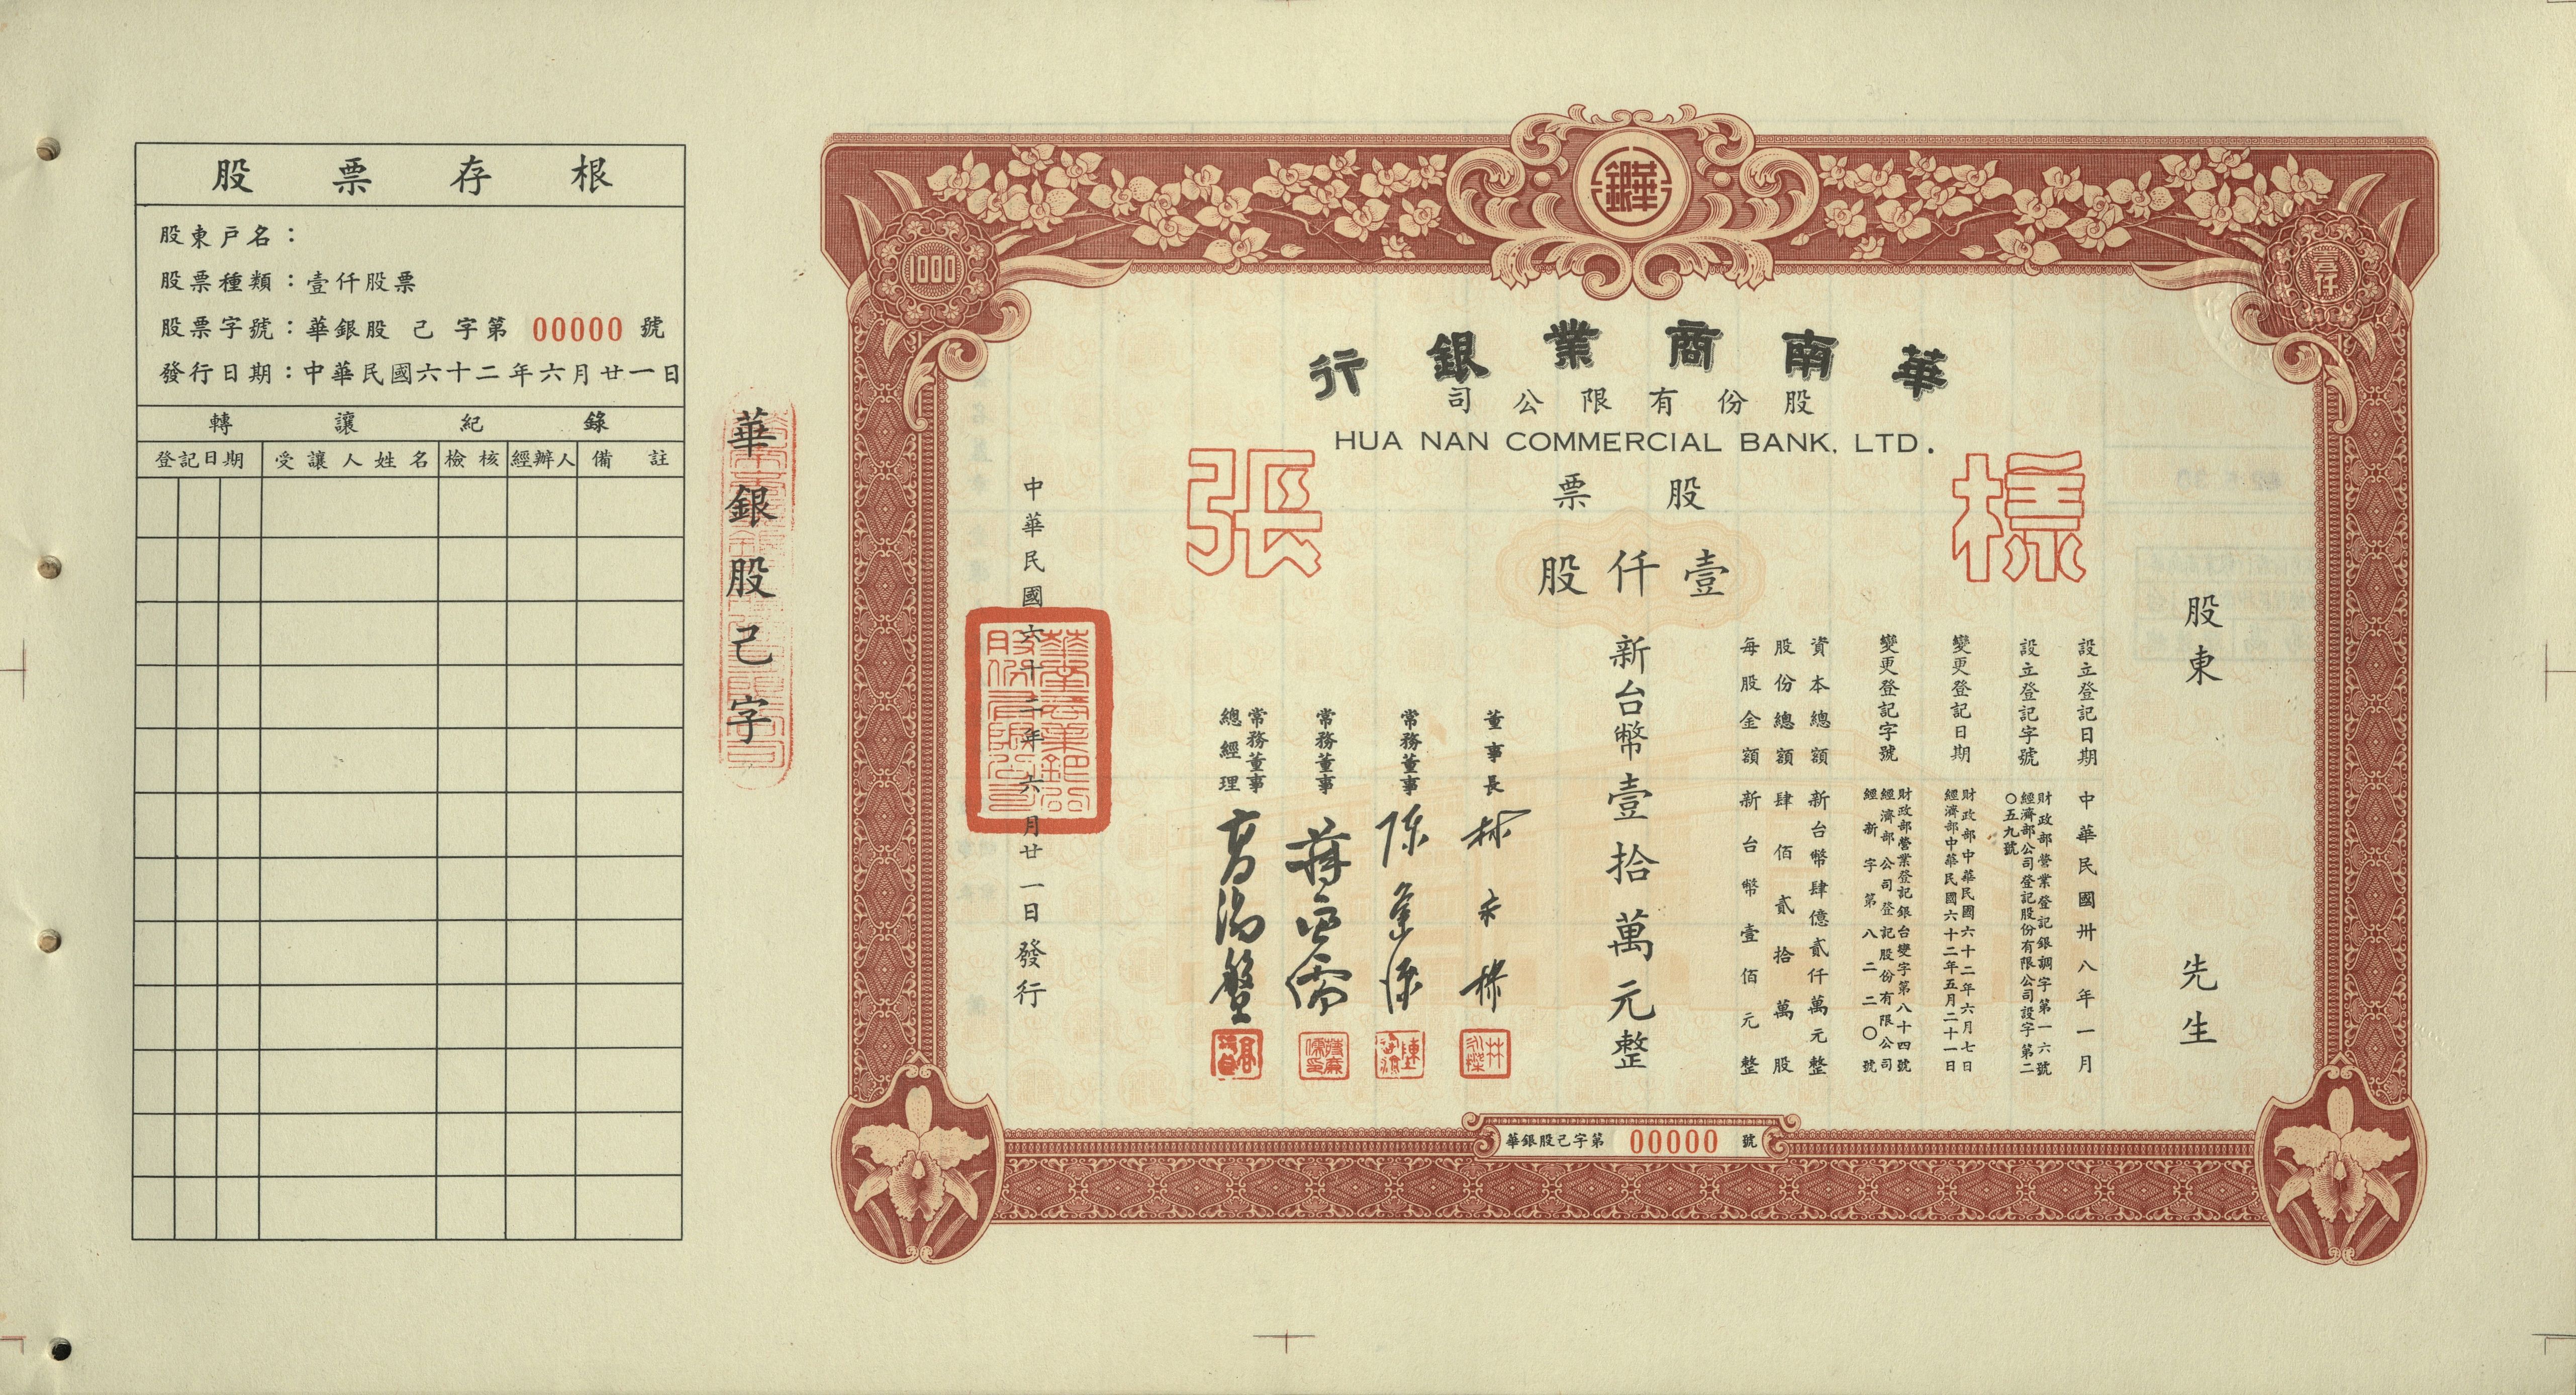 股票存根
股東戶名：
股票種類：壹仟股票
股票字號：華銀股 己 字第 00000 號
發行日期：中華民國六十二年六月廿一日
轉讓紀錄
登記日期 受讓人姓名 檢核 經辦人 備註
華銀股己字
1000
華銀
壹仟
華南商業銀行
股份有限公司
HUA NAN COMMERCIAL BANK, LTD.
樣張
股票
壹仟股
股東 先生
設立登記日期 中華民國卅八年一月
設立登記字號 財政部營業登記銀調字第一六號
經濟部公司登記股份有限公司設字第二
〇五九號
變更登記日期 財政部中華民國六十二年六月七日
經濟部中華民國六十二年五月二十一日
變更登記字號 財政部營業登記銀台變字第八十四號
經濟部公司登記股份有限公司
經新字第八二二〇號
資本總額 新台幣肆億貳仟萬元整
股份總額 肆佰貳拾萬股
每股金額 新台幣壹佰元整
新台幣壹拾萬元整
董事長
常務董事
常務董事
常務董事
總經理
中華民國六十二年六月廿一日發行
華南商業銀行股份有限公司
華銀股己字第 00000 號